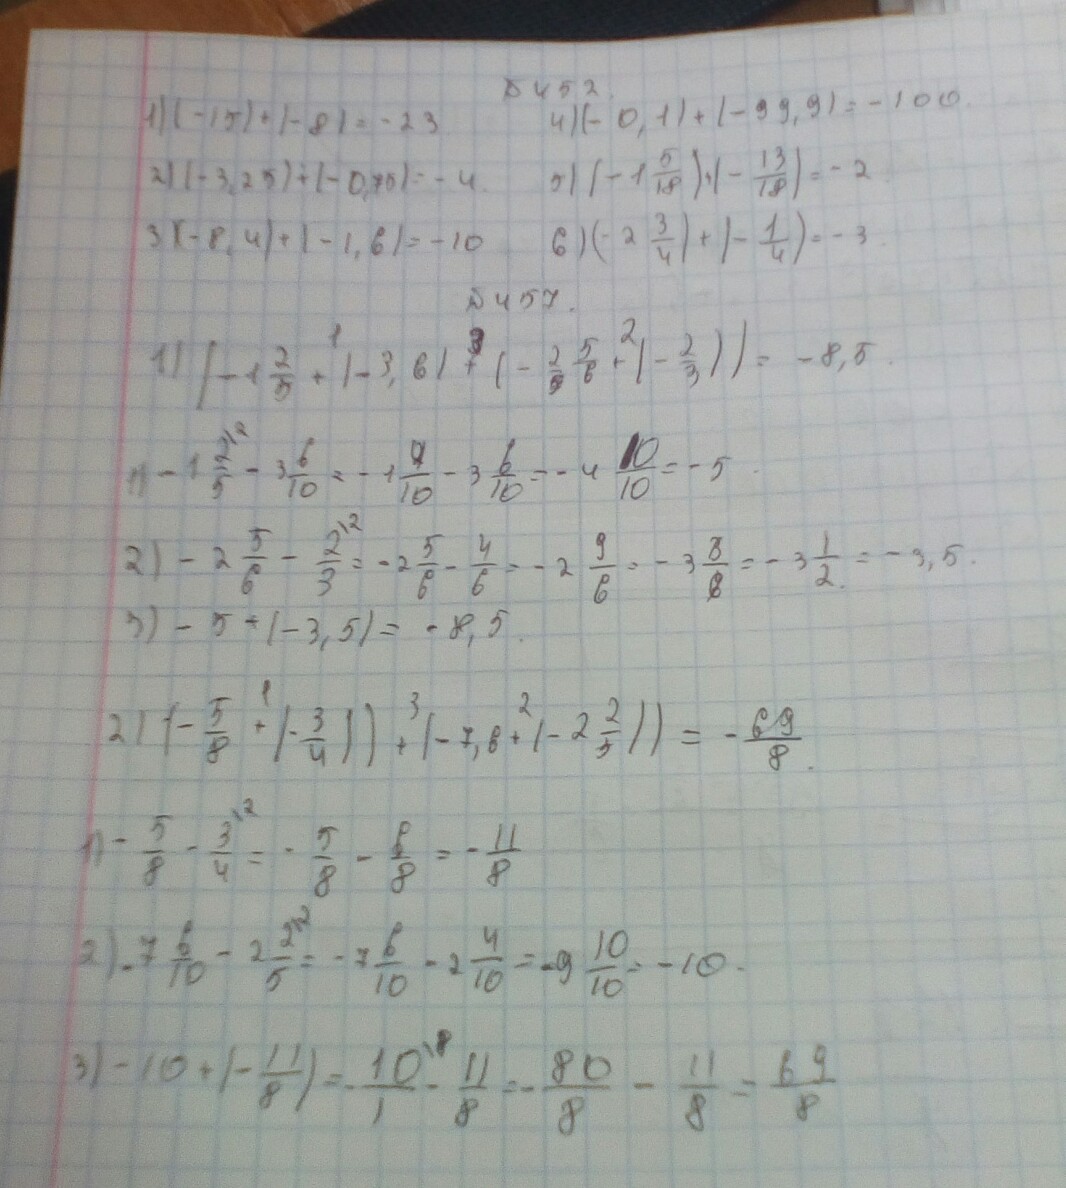 №452.
1) (-15)+(-8)=-23 4)(-0,1)+(-99,9)=-100.
2)(-3,25)+(-0,75)=-4. 5)(-1 5/18)+(-13/18)=-2
3)(-8,4)+(-1,6)=-10 6)(-2 3/4)+(-1/4)=-3
№457.
1) (-1 2/5 +¹ (-3,6) +³ (-2 5/6 +² (-2/3))) = -8,5.
1) -1 2/5 \2 - 3 6/10 = -1 4/10 - 3 6/10 = -4 10/10 = -5.
2) -2 5/6 - 2/3 \2 = -2 5/6 - 4/6 = -2 9/6 = -3 3/6 = -3 1/2 = -3,5.
3) -5+(-3,5)= -8,5.
2) (-5/8 +¹ (-3/4)) +³ (-7,6 +² (-2 2/5)) = -69/8.
1) -5/8 - 3/4 \2 = -5/8 - 6/8 = -11/8
2) -7 6/10 - 2 2/5 \2 = -7 6/10 - 2 4/10 = -9 10/10 = -10.
3) -10+(-11/8) = -10/1 \8 - 11/8 = -80/8 - 11/8 = 69/8